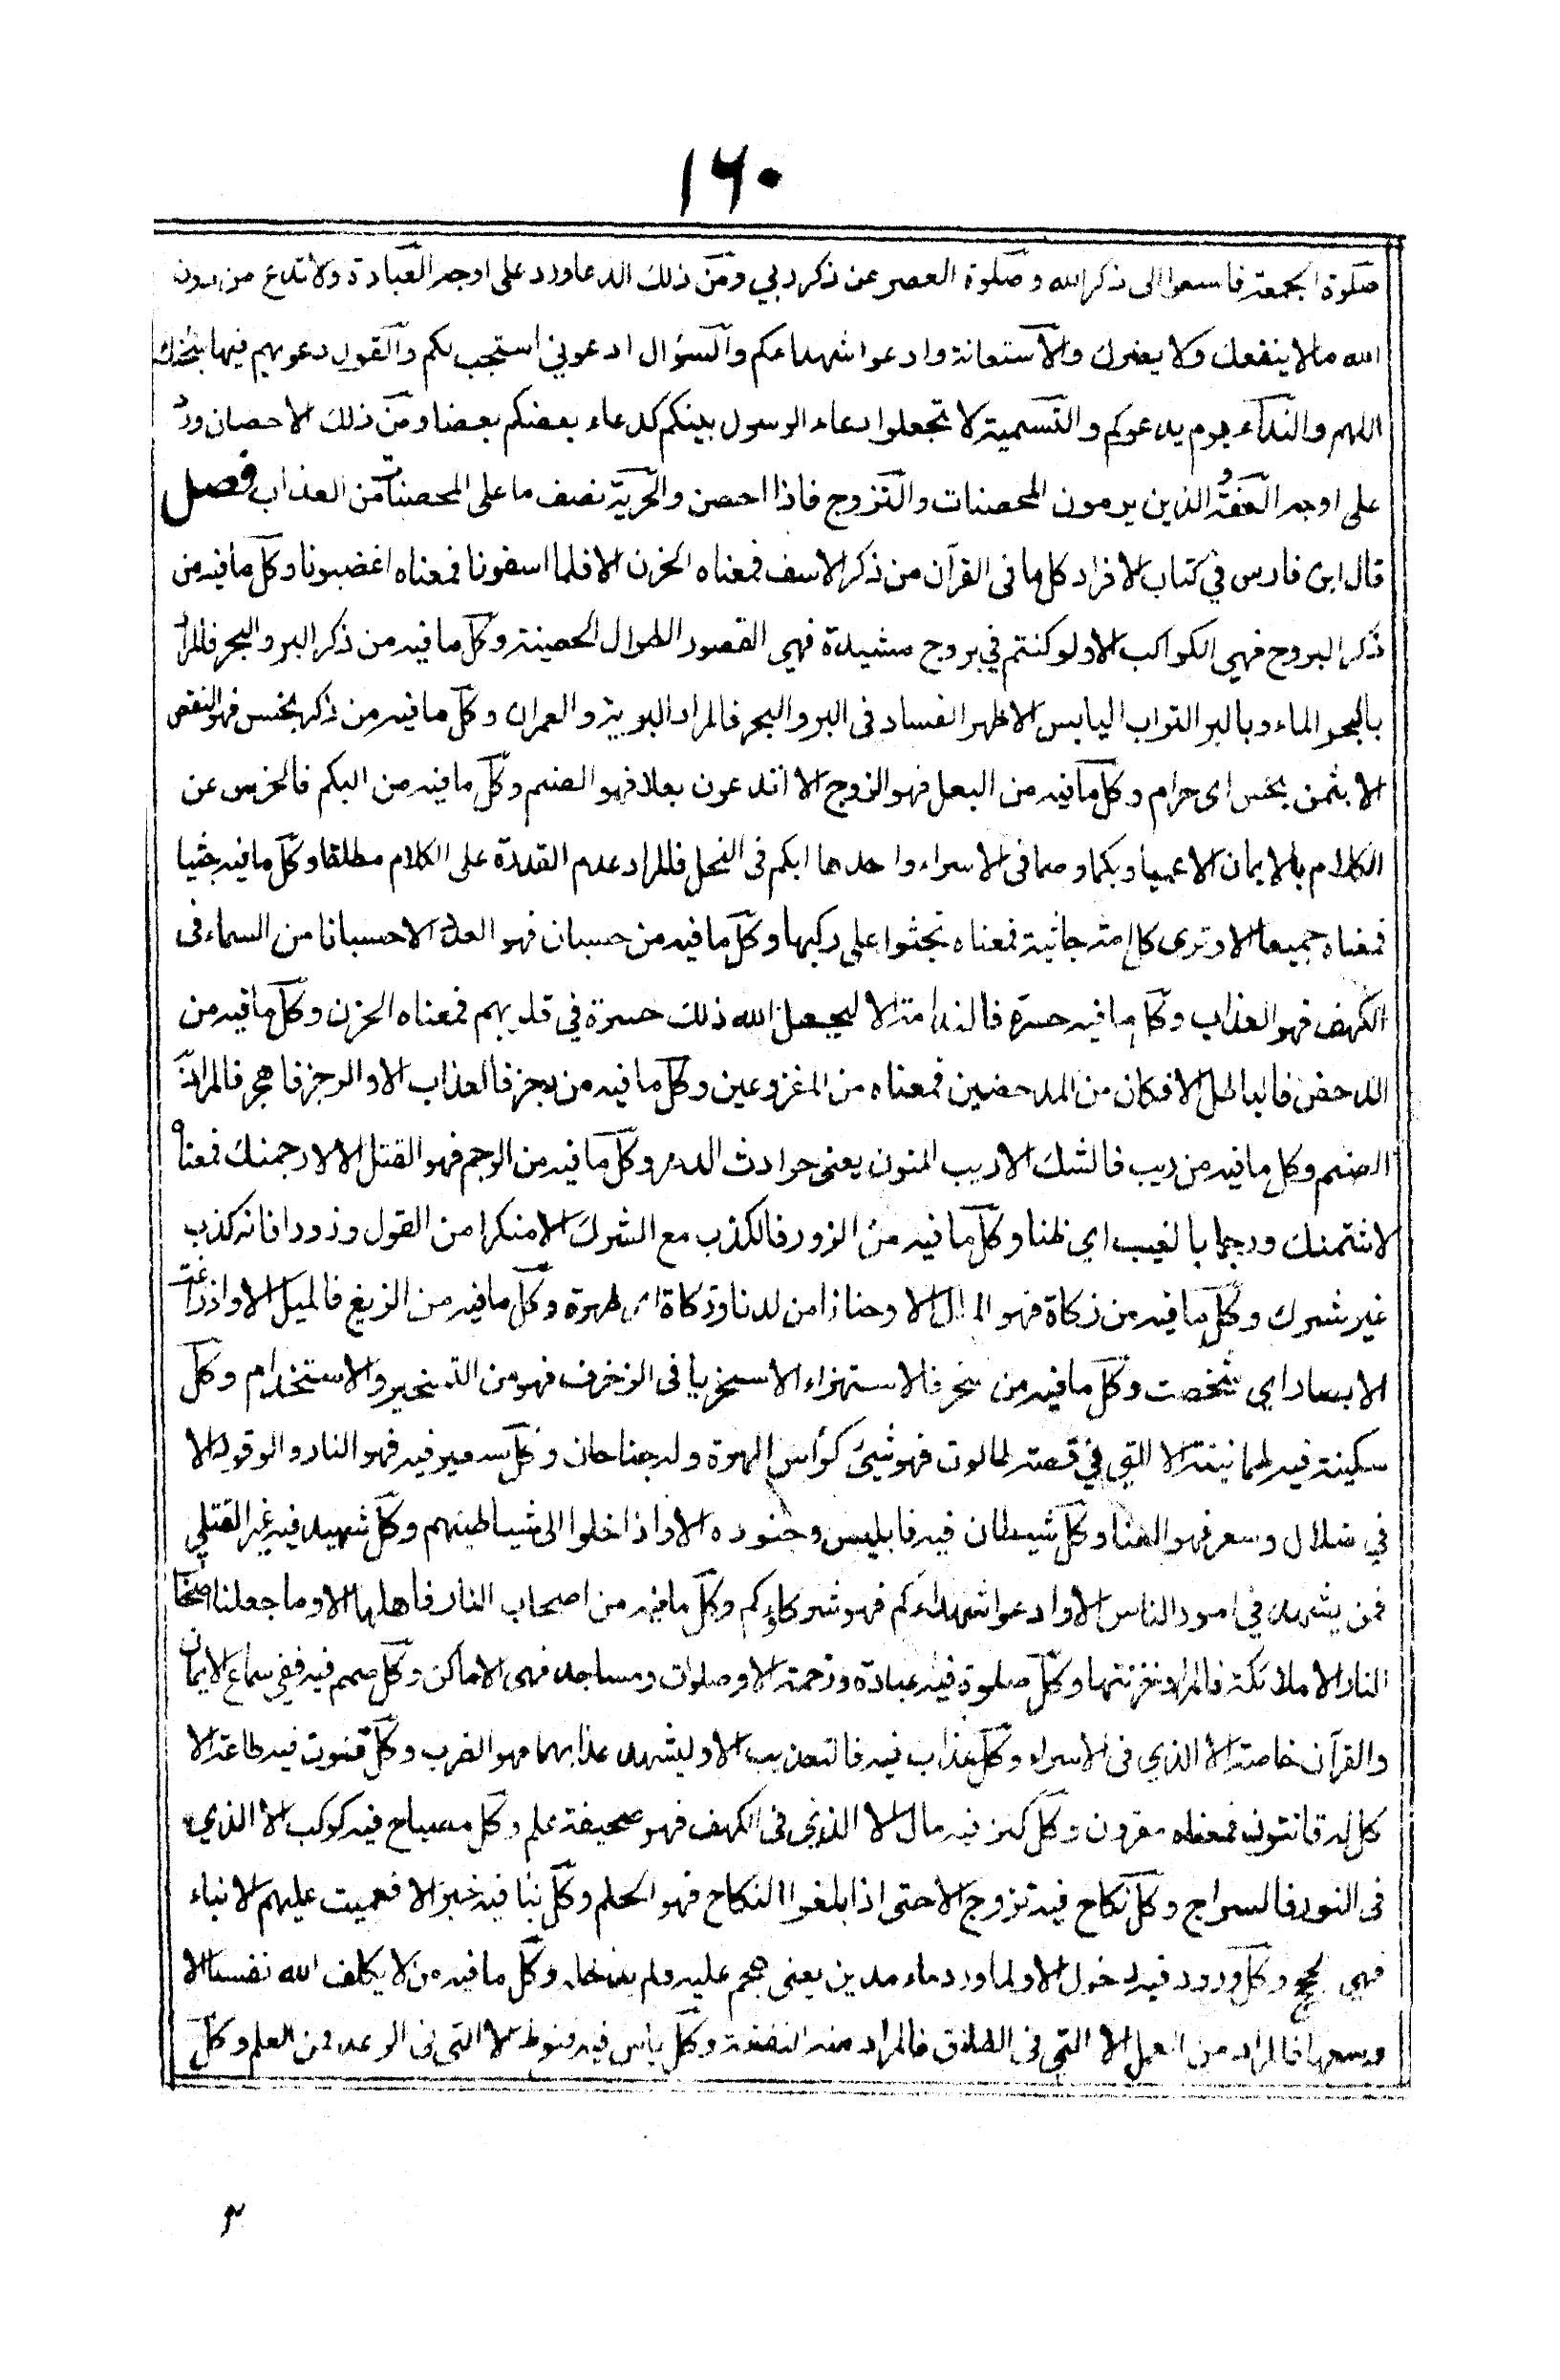 ۱۶۰
صلوة الجمعة فاسعوا الى ذكر الله وصلوة العصر عن ذكر ربي ومن ذلك الدعا ورد على اوجه العبادة ولا تدع من دون
الله مالا ينفعك ولا يضرك والاستعانة وادعوا شهداءكم والسؤال ادعوني استجب لكم والقول دعويهم فيها سبحنك
اللهم والنداء يوم يدعوكم والتسمية لا تجعلوا دعاء الرسول بينكم كدعاء بعضكم بعضا ومن ذلك الاحصان ورد
على اوجه العفة الذين يرمون المحصنات والتزوج فاذا احصن والحرية نصف ما على المحصنات من العذاب فصل
قال ابن فارس في كتاب الافراد كل ما في القرآن من ذكر الاسف فمعناه الحزن الا فلما اسفونا فمعناه اغضبونا وكل ما فيه من
ذكر البروج فهي الكواكب الا ولو كنتم في بروج مشيدة فهي القصور الطوال الحصينة وكل ما فيه من ذكر البر والبحر فالمراد
بالبحر الماء وبالبر التراب اليابس الا ظهر الفساد في البر والبحر فالمراد البرية والعمران وكل ما فيه من ذكر بخس فهو النقص
الا بثمن بخس اى حرام وكل ما فيه من البعل فهو الزوج الا اتدعون بعلا فهو الصنم وكل ما فيه من البكم فالخرس عن
الكلام بالايمان الا عميا وبكما وصما في الاسراء واحدهما ابكم في النحل فالمراد عدم القدرة على الكلام مطلقا وكل ما فيه جثيا
فمعناه جميعا الا وترى كل امة جاثية فمعناه تجثوا على ركبها وكل ما فيه من حسبان فهو العدد الا حسبانا من السماء في
الكهف فهو العذاب وكل ما فيه حسرة فالندامة الا ليجعل الله ذلك حسرة في قلوبهم فمعناه الحزن وكل ما فيه من
الدحض فالباطل الا فكان من المدحضين فمعناه من المغزوعين وكل ما فيه من رجز فالعذاب الا والرجز فاهجر فالمراد
الصنم وكل ما فيه من ريب فالشك الا ريب المنون يعنى حوادث الدهر وكل ما فيه من الرجم فهو القتل الا لارجمنك فمعناه
لاشتمنك ورجما بالغيب اي ظنا وكل ما فيه من الزور فالكذب مع الشرك الا منكرا من القول وزورا فانه كذب
غير شرك وكل ما فيه من زكاة فهو المال الا وحنانا من لدنا وزكاة اى طهرة وكل ما فيه من الزيغ فالميل الا واذ زاغت
الابصار اي شخصت وكل ما فيه من سخر فالاستهزاء الا سخريا في الزخرف فهو من التسخير والاستخدام وكل
سكينة فيه طمانينة الا التي في قصة طالوت فهو شيئ كرأس الهرة وله جناحان وكل سعير فيه فهو النار والوقود الا
في ضلال وسعر فهو العنا وكل شيطان فيه فابليس وجنوده الا واذا خلوا الى شياطينهم وكل شهيد فيه غير القتلى
فمن يشهد في امور الناس الا وادعوا شهداءكم فهو شركاؤكم وكل ما فيه من اصحاب النار فاهلها الا وما جعلنا اصحاب
النار الا ملائكة فالمراد خزنتها وكل صلوة فيه عبادة ورحمة الا وصلوات ومساجد فهى الاماكن وكل صمم فيه ففي سماع الايمان
والقرآن خاصة الا الذي في الاسراء وكل عذاب فيه فالتعذيب الا وليشهد عذابهما فهو الضرب وكل قنوت فيه طاعة الا
كل له قانتون فمعناه مقرون وكل كنز فيه مال الا الذي في الكهف فهو صحيفة علم وكل مصباح فيه كوكب الا الذي
في النور فالسراج وكل نكاح فيه تزوج الا حتى اذا بلغوا النكاح فهو الحلم وكل نبا فيه خبر الا فعميت عليهم الانباء
فهي الحجج وكل ورود فيه دخول الا ولما ورد ماء مدين يعنى هجم عليه ولم يدخله وكل ما فيه من لا يكلف الله نفسا الا
وسعها فالمراد من العمل الا التي في الطلاق فالمراد منه النفقة وكل ياس فيه قنوط الا التي في الرعد فمن العلم وكل
۳